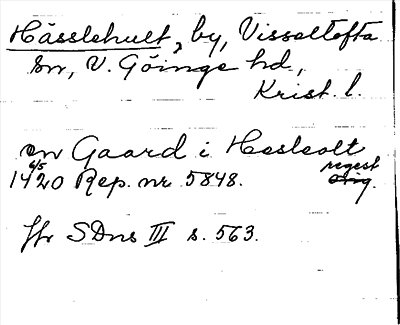 Hässlehult, by, Visseltofta
sn, V. Göinge hd.,
Krist. l.
en Gaard i Hesleolt
6/5 regest
1420 Rep. nr 5848. orig.
Jfr SDns III s. 563.